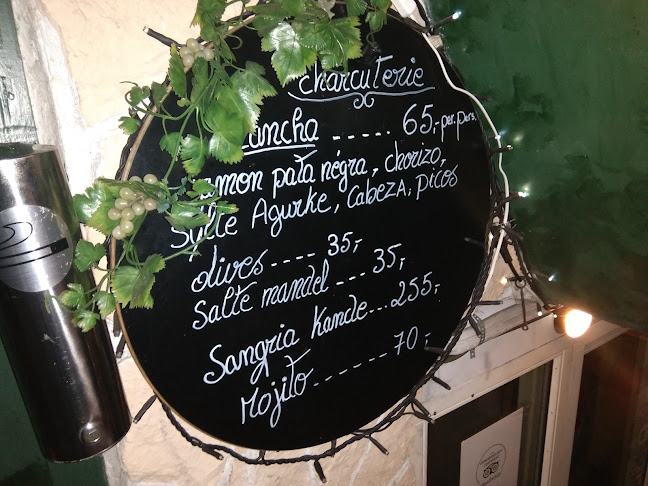 Charcuterie
Plancha ----- 65,- per. pers.
Jamon pata négra, chorizo,
Sylte Agurke, CabezA, picos
Olives ---- 35,-
Salte mandel --- 35,-
Sangria Kande... 255,-
Mojito ------- 70,-